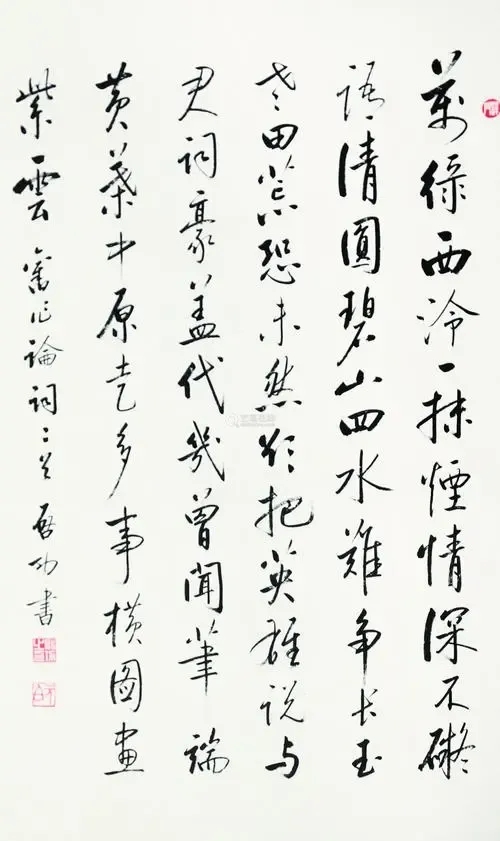 萬綠西泠一抹煙情深不礙
語清圓碧山四水難爭長玉
老田荒恐未然欲把英雄説与
君詞豪蓋代幾曾聞筆端
黄葉中原走多事横圖畫
紫雲 舊作論詞二首 啓功書